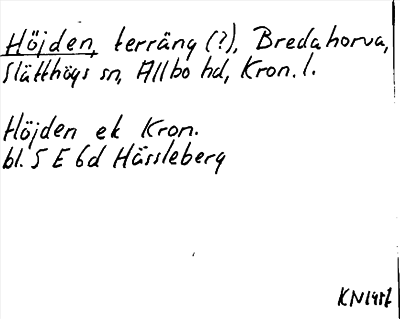 Höjden, terräng (?), Bredahorva,
Slätthögs sn, Allbo hd, Kron. l.
Höjden ek Kron.
bl. 5 E 6d Hässleberg